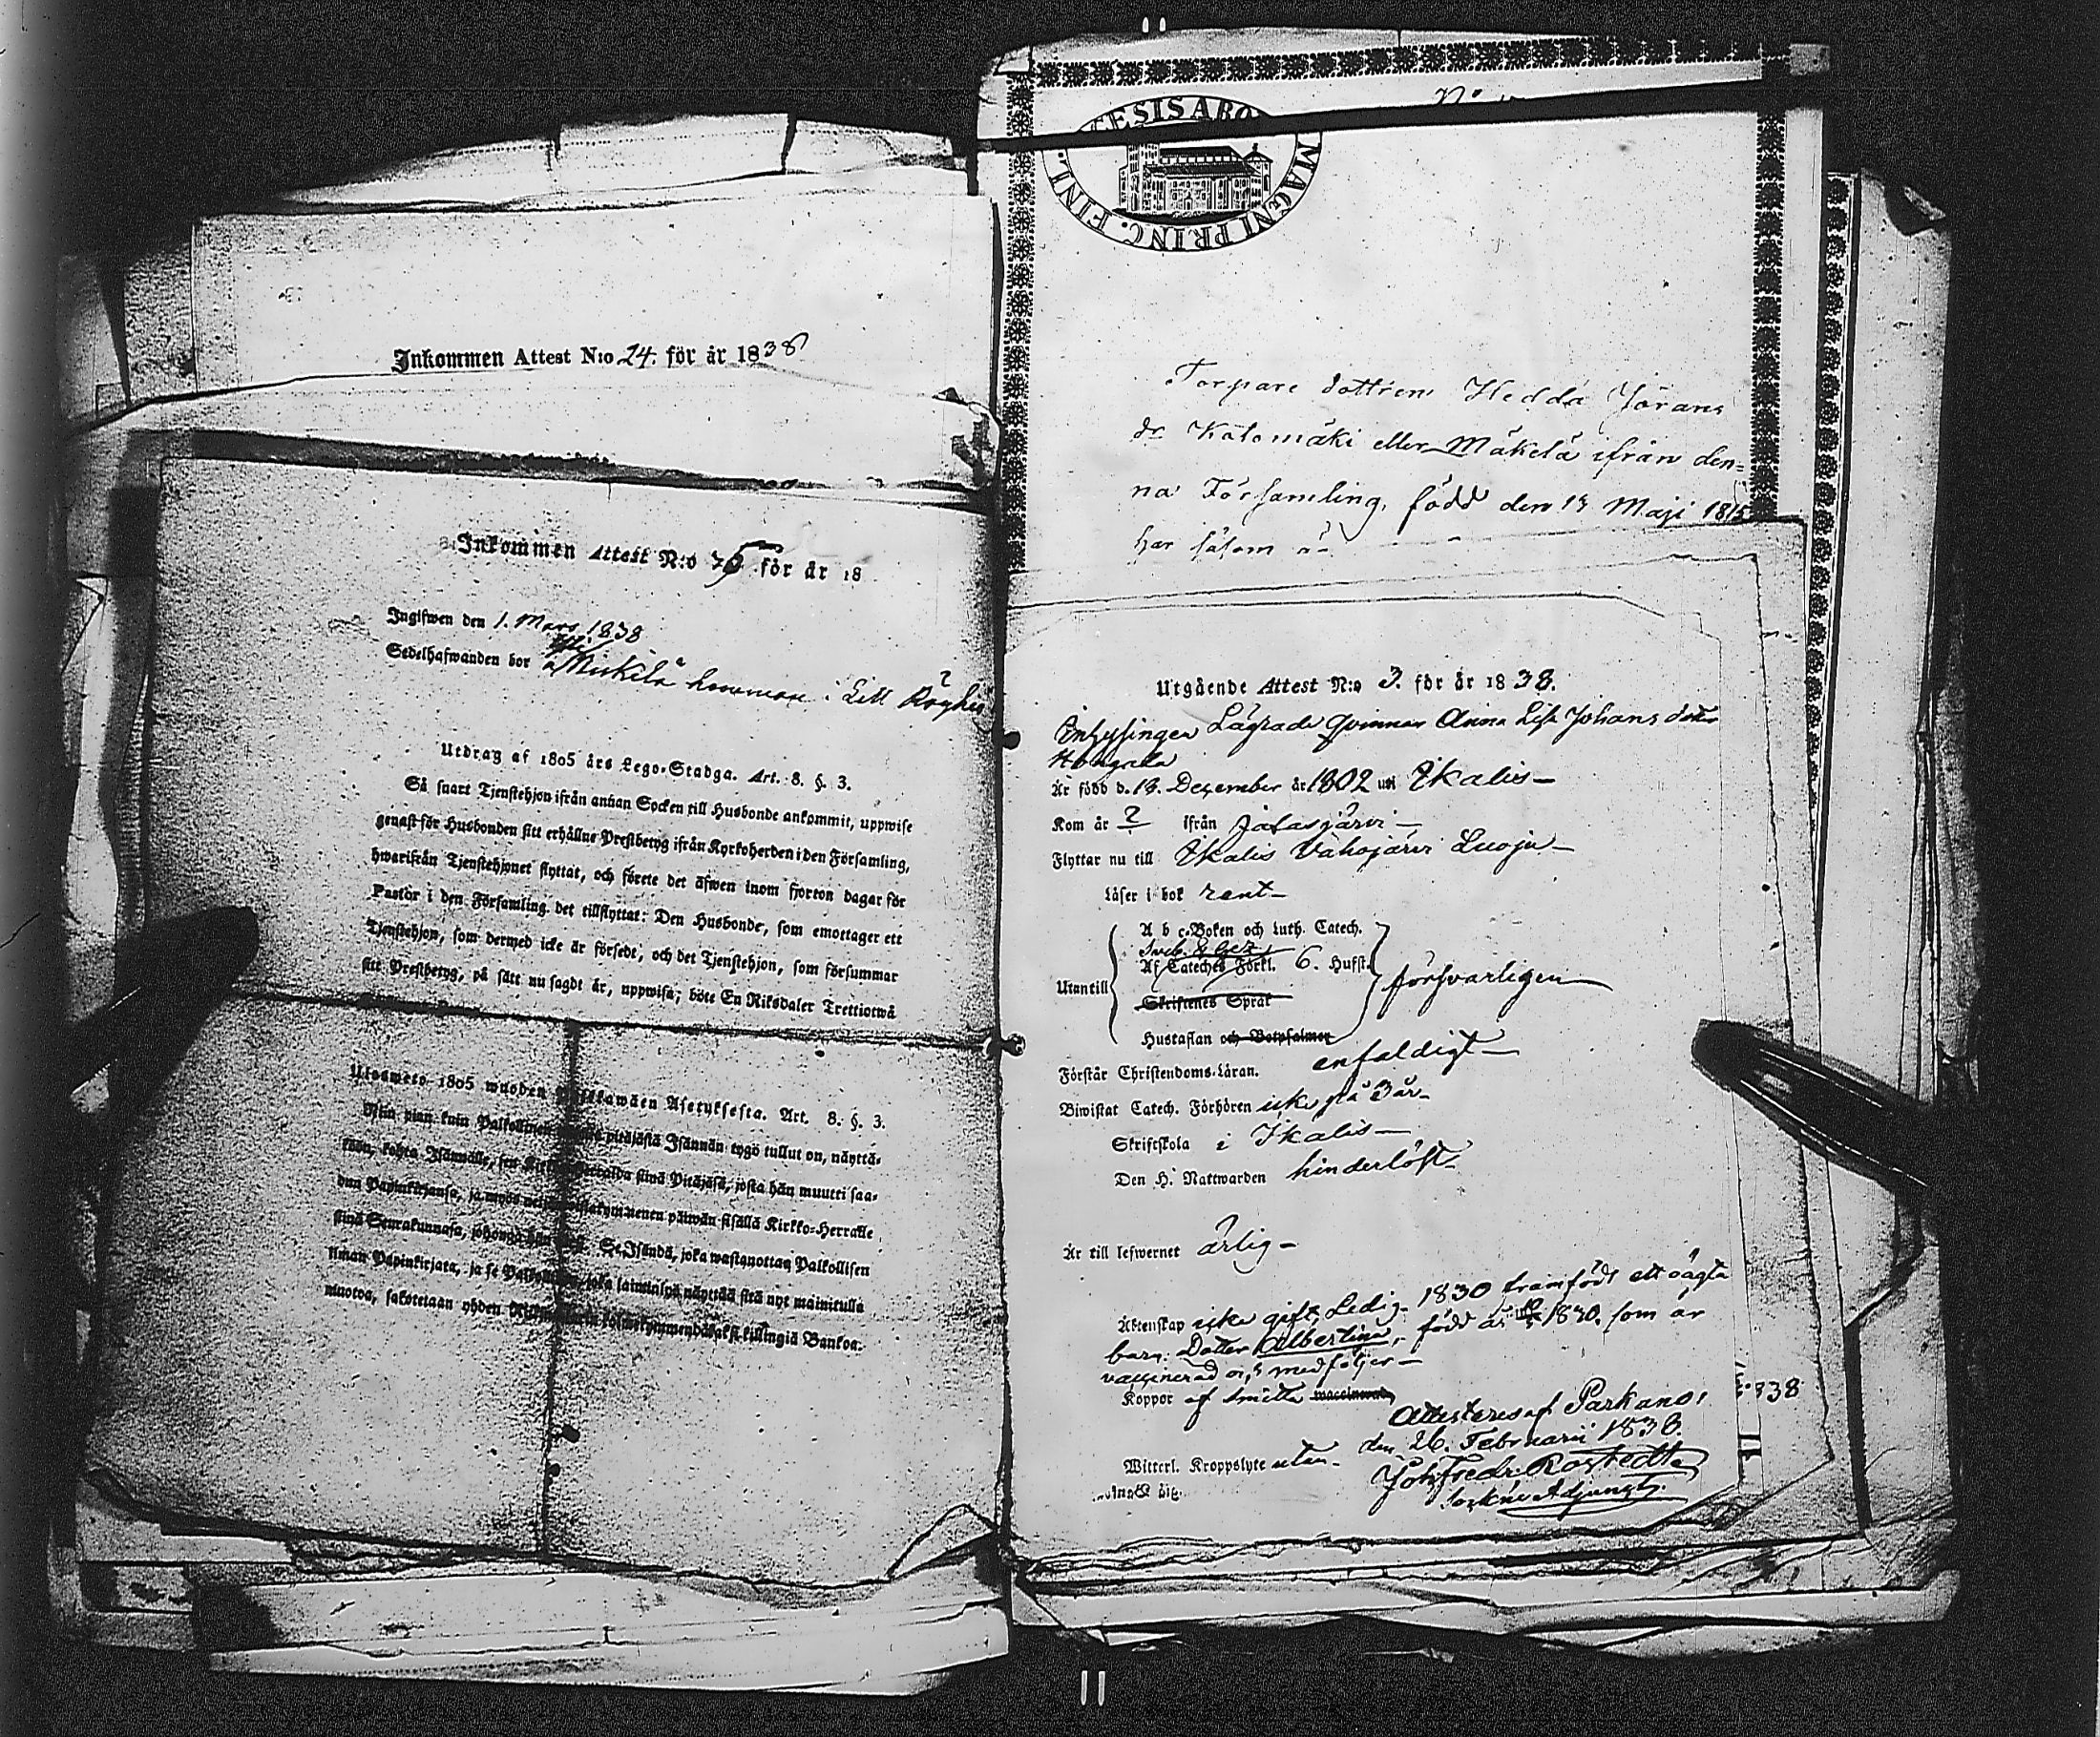 Inkommen Attest N:o 24. för år 1838
Inkommen Attest N:o för år 18
Ingifwen den 1. Mars 1838
Sedelhafwanden bor Mickilä hemman i Lill Röyhiö
Utdrag af 1805 års Lego-Stadga. Art. 8. §. 3.
Så snart Tjenstehjon ifrån annan Socken till Husbonde ankommit, uppwise
genast för Husbonden sitt erhållne Prestbetyg ifrån Kyrkoherden i den Församling,
hwarifrån Tjenstehjonet flyttat, och förete det äfwen inom fjorton dagar för
Pastor i den Församling det tillflyttat: Den Husbonde, som emottager ett
Tjenstehjon, som dermed icke är försedt, och det Tjenstehjon, som försummar
sitt Prestbetyg, på sätt nu sagdt är, uppwisa; böte En Riksdaler Trettiotwå
Ulosweto 1805 wuoden Asetuksesta. Art. 8. §. 3.
Niin pian kuin Palkollinen pitäjästä Isännän tygö tullut on, näyttä-
köön, kohta Isännälle, sen siinä Pitäjäsä, josta hän muutti saa-
dun Papinkirjansa, ja myös päiwän sisällä Kirkko-Herralle
siinä Seurakunnasa, johonga hän Se Isändä, joka wastanottaa Palkollisen
ilman Papinkirjata, ja se joka laiminlyä näyttää sitä nyt mainitulla
muotoa, sakotetaan yhden killingiä Bankoa.
ESIS ABO MAGNI PRINC. FINL.
Torpare dottren Hedda Görans
dr Katomäki eller Mäkelä ifrån den=
na Församling, född den 13 Maji 1815
har såsom
Utgående Attest N:o 3. för år 1838.
Inhysingen Lägrade Qvinnan Anna Lisa Johans dotter
Är född d. 13. December år 1802 uti Ikalis
Kom år ? ifrån Jalasjärvi
Flyttar nu till Ikalis Vahojärvi Luoju
Läser i bok rent
A b c-Boken och Luth. Catech.
Sveb. &
Af Cateches Förkl. 6. Hufst.
Utantill försvarligen
Skriftenes Språk
Hustaflan och Botpsalmer
Förstår Christendoms-Läran. enfaldigt
Biwistat Catech. Förhören icke på 3 år
Skriftskola i Ikalis
Den H. Nattwarden hinderlöst
Är till lefwernet ärlig
Äktenskap icke gift, Ledig. 1830 framfödt ett oägta
barn: Dotter Albertina, född år 1830. som är
vaccinerad och medföljer
Koppor af Smitta waccinerad
Attesteras af Parkano,
den 26. Februarii 1838.
Witterl. Kroppslyte utan
Joh. Fredr. Rostedt
Sockne Adjunct.
838